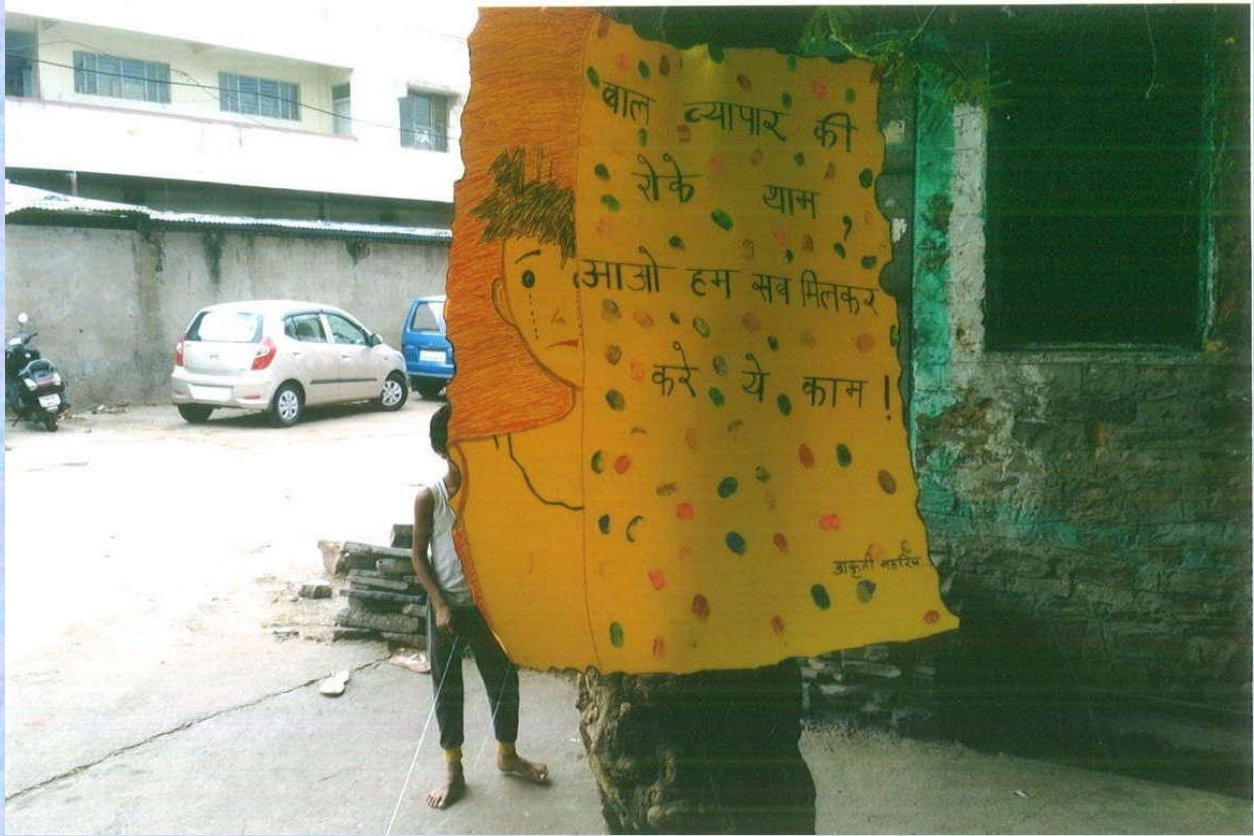 बाल व्यापार की
रोके थाम ,
आओ हम सब मिलकर
करे ये काम !
आकृती महर्षि